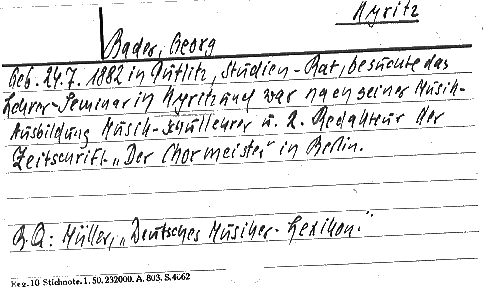 Kyritz
Bader, Georg
Geb. 24.7. 1882 in Putlitz, Studien-Rat, besuchte das
Lehrer-Seminar in Kyritz und war nach seiner Musik-
Ausbildung Musik-schullehrer u. 2. Redakteur der
Zeitschrift „Der Chormeister" in Berlin.
B.Q: Müller, „Deutsches Musiker-Lexikon."
Reg. 10 Stichnote. 1. 50. 232000. A. 803. S. 4662